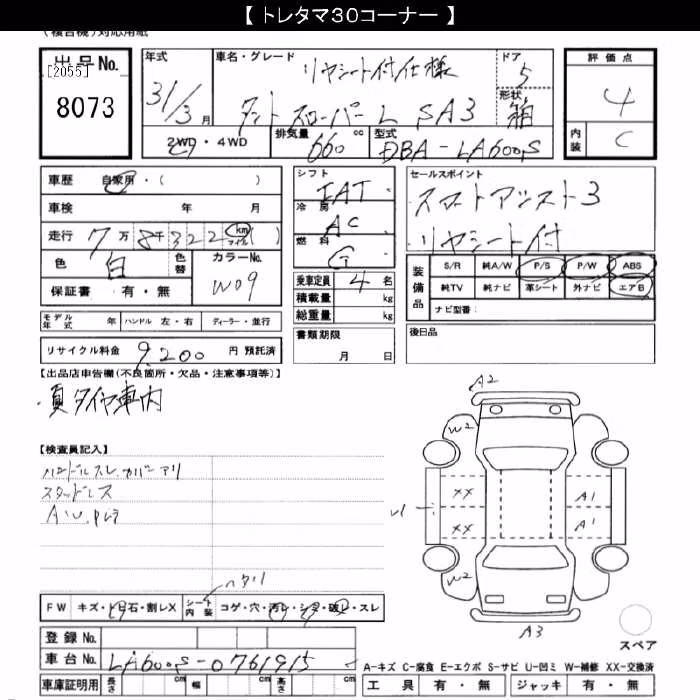 【 トレタマ30コーナー 】
出品No.
[2055]
8073
年式
31/3
月
車名・グレード
リヤシート付仕様
タント スローパー L SA3
ドア
5
形状
箱
評価点
4
内装
C
2WD・4WD
排気量
660
cc
型式
DBA-LA600S
車歴
自家用・( )
車検 年 月
走行
7万8千322
km
マイル
( )
色
白
色替
カラーNo.
W09
保証書 有・無
シフト
IAT
冷房
AC
燃料
G
乗車定員 4 名
積載量 kg
総重量 kg
書類期限
月 日
セールスポイント
スマートアシスト3
リヤシート付
装備品
S/R 純A/W P/S P/W ABS
純TV 純ナビ 革シート 外ナビ エアB
ナビ型番:
モデル年式 年 ハンドル 左・右 ディーラー・並行
リサイクル料金 9,200 円 預託済
後日品
【出品店申告欄(不良箇所・欠品・注意事項等)】
・夏タイヤ車内
【検査員記入】
ハンドルスレ、カバーアリ
スタッドレス
A2
W2
XX
A1
XX
A1
W2
A3
FW キズ・トビ石・割レX
シート内装
コゲ・穴・汚レ・シミ・破レ・スレ
登録No.
車台No.
LA600S-0761915
スペア
A-キズ C-腐食 E-エクボ S-サビ U-凹ミ W-補修 XX-交換済
車庫証明用 長さ cm 幅 cm 高さ cm
工具 有・無 ジャッキ 有・無